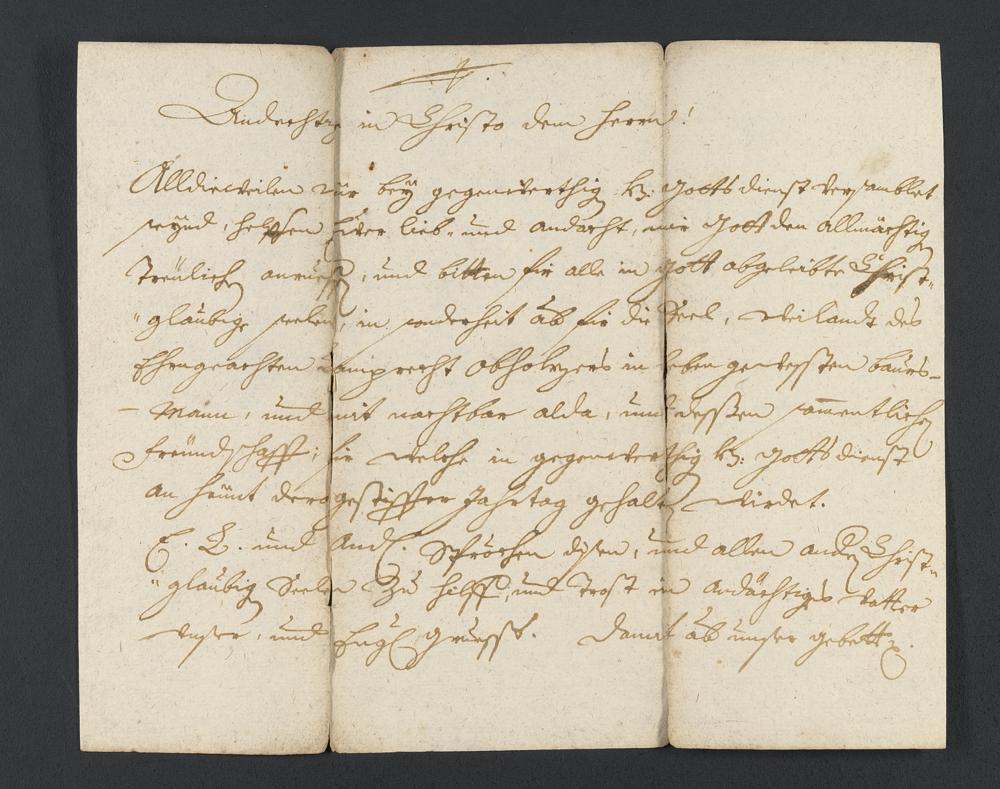 Andechtig in Christo dem Herrn!
Alldieweilen wür bey gegenwerthig h: Gottsdienst versamblet
seynd, helffen Eüer lieb- und andacht, mir Gott den allmächtig
Treülich anrueff, und bitten für alle in Gott abgeleibte Christ-
glaubige seelen, in sonderheit ab für die Seel, weilandt des
Ehrngeachten Lamprecht Obholzers in leben gewesten baurs-
Mann, und mit nachtbar alda, und dessen sammentlichen
freündschafft; für welche in gegenwerthig h: Gottsdienst
an heünt dero gestiffter Jahrtag gehalten wirdet.
E. L. und And. Spröchen disen, und allen andern Christ-
glaubig Seelen zu hilff, und Trost in andächtiges Vatter
unser, und Engl: gruesß. Damit ab unser gebett